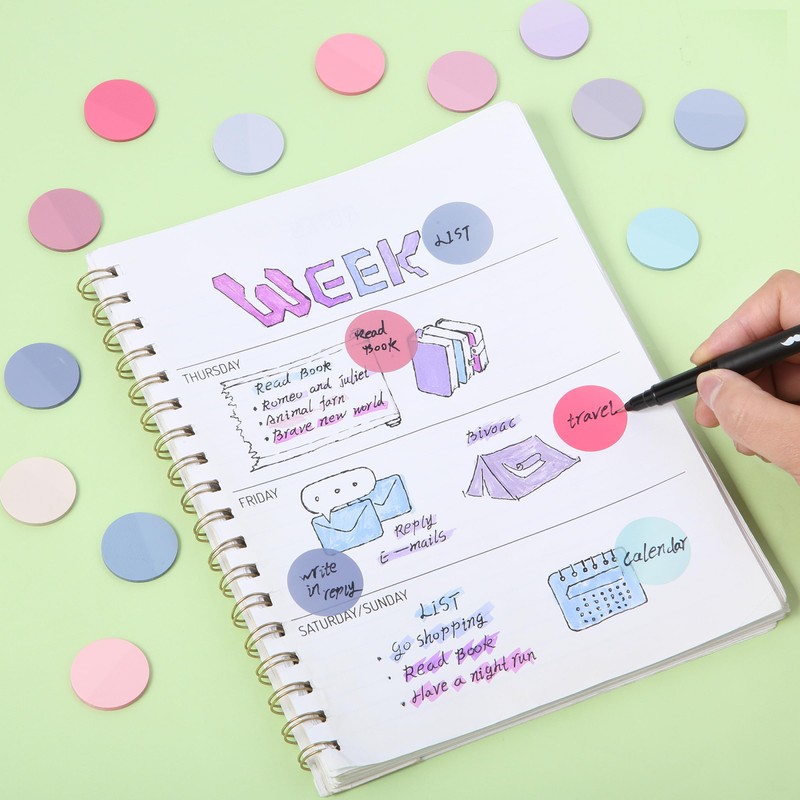 WEEK
LIST
THURSDAY
Read
Book
Read Book
• Romeo and Juliet
• Animal farn
• Brave new world
FRIDAY
Bivoac
travel
Reply
E-mails
write
in reply
calendar
SATURDAY/SUNDAY
LIST
• go shopping
• Read Book
• Have a night run